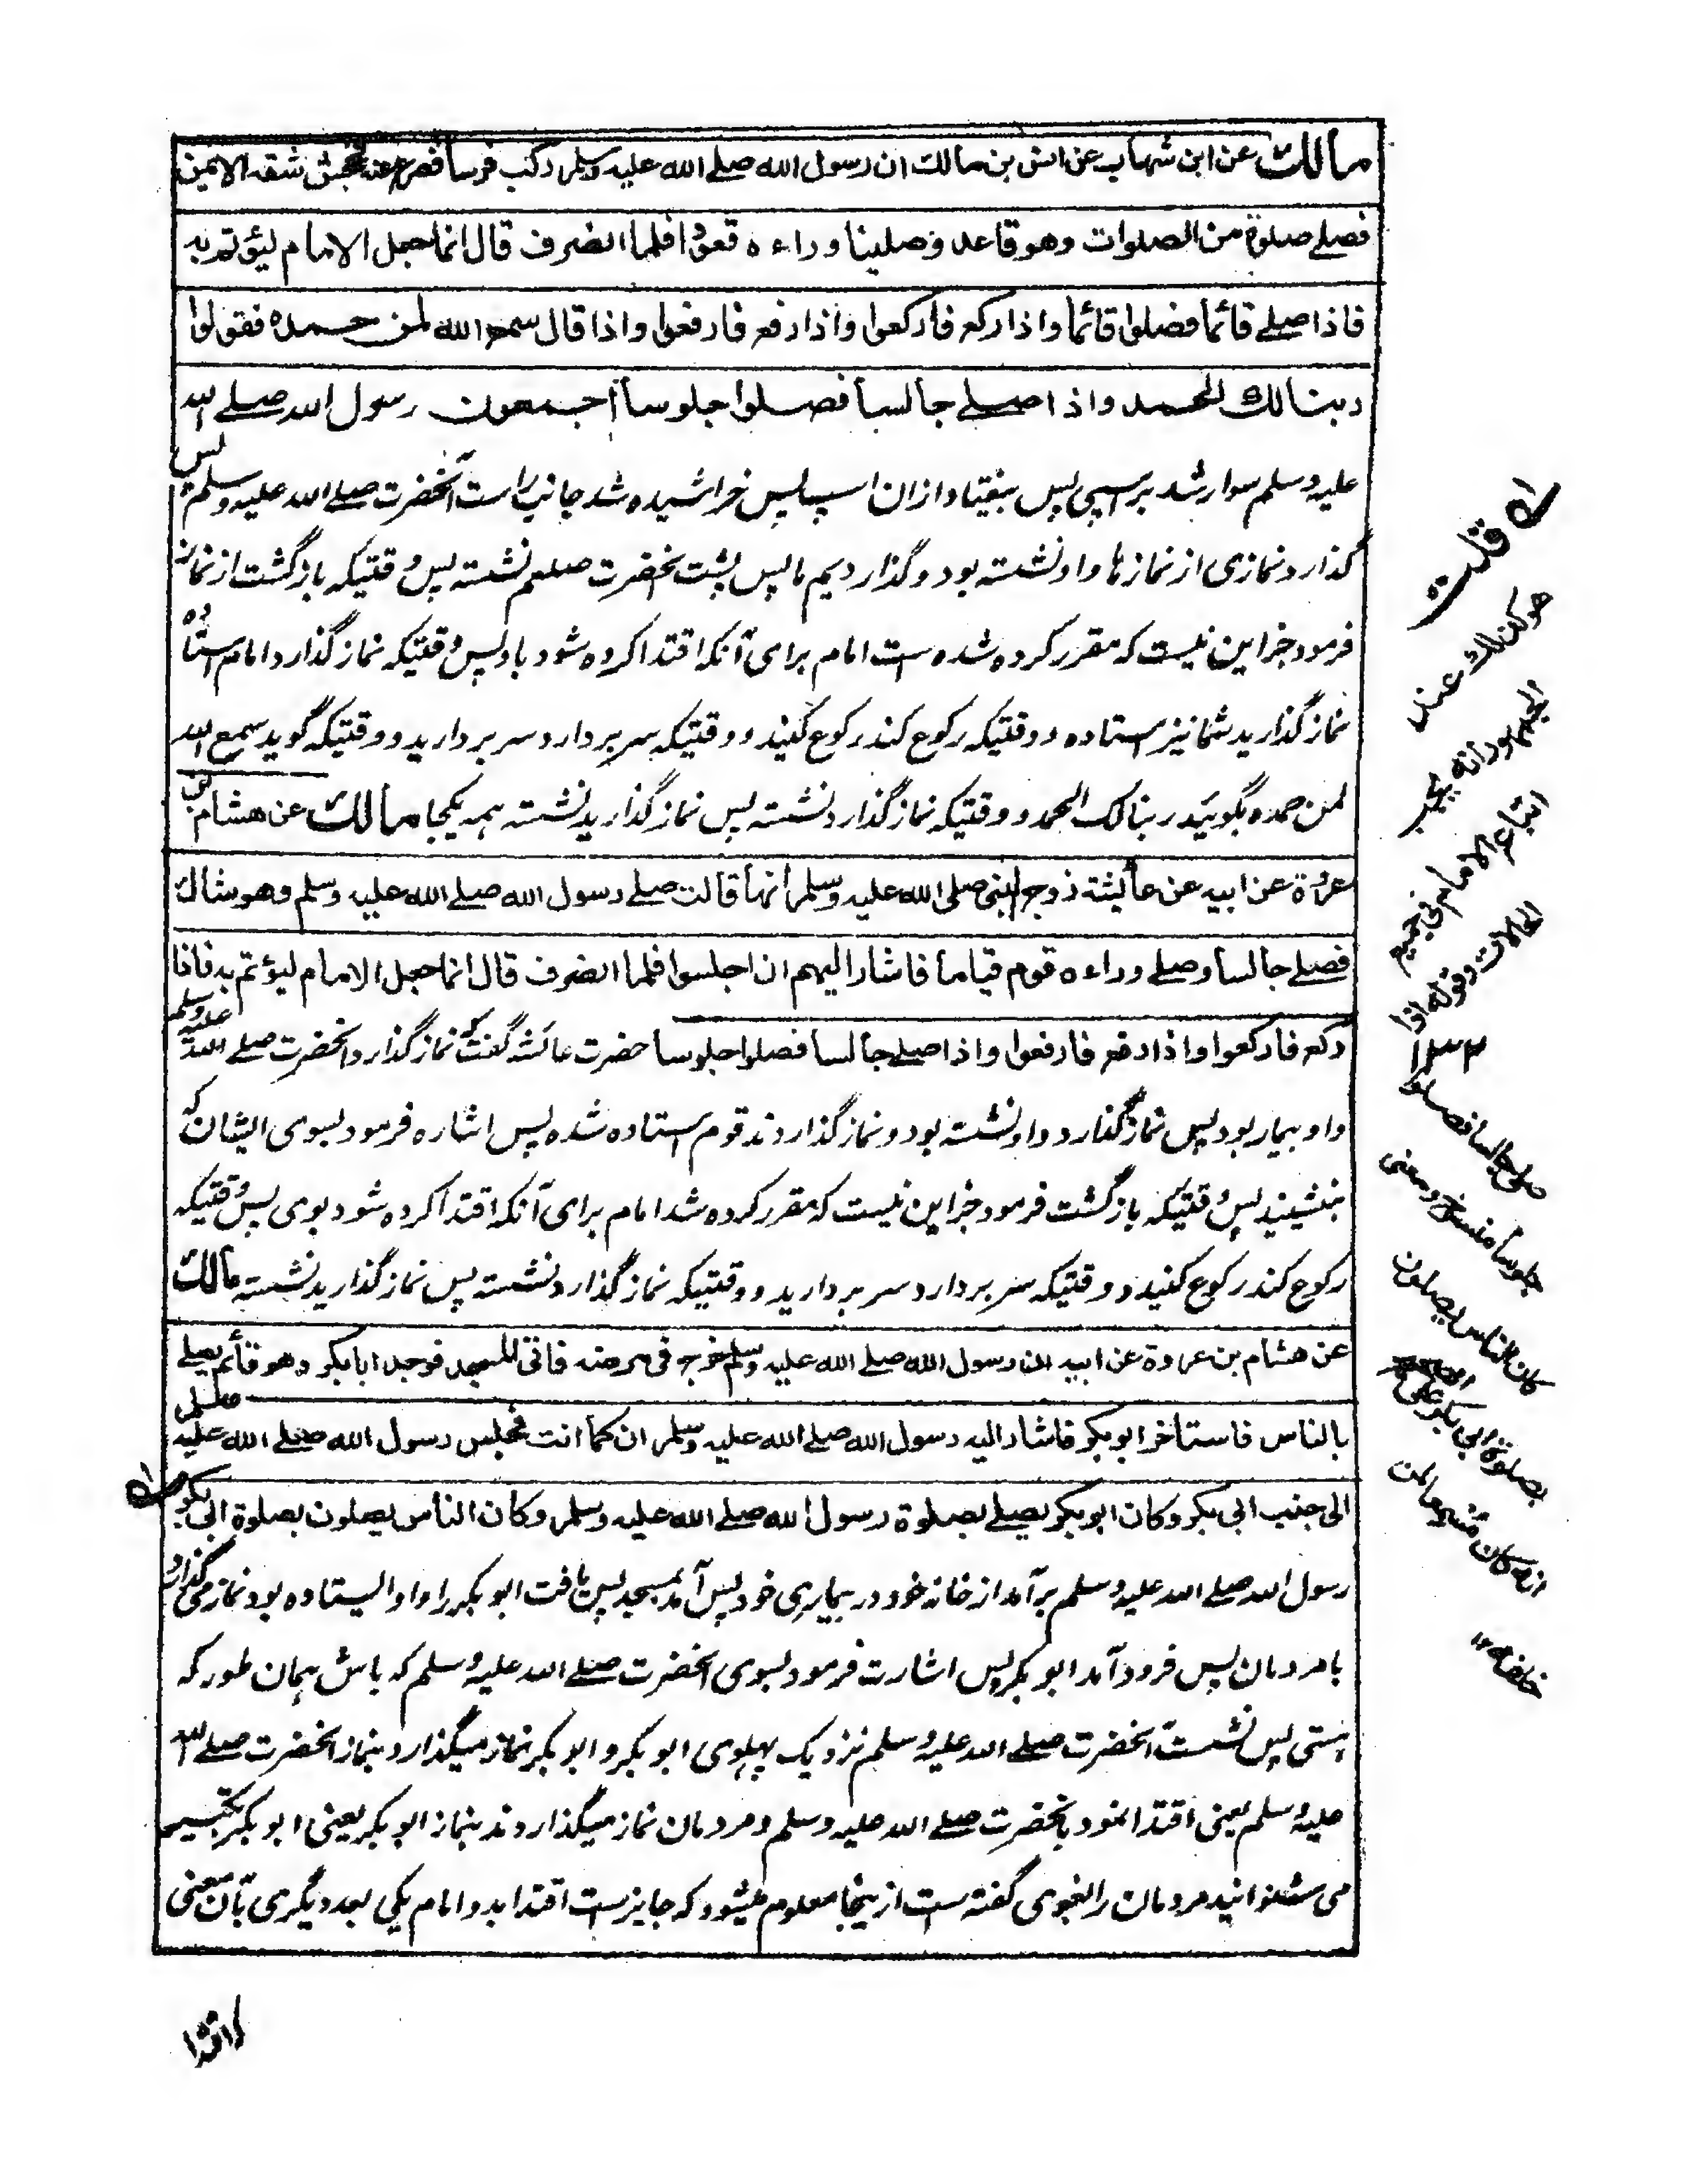 مالك عن ابن شهاب عن انس بن مالك ان رسول الله صلے الله عليه وسلم ركب فرسا فصرع عنه فجحش شقه الايمن
فصلے صلوة من الصلوات وهو قاعد وصلينا وراءه قعودا فلما انصرف قال انما جعل الامام ليؤتم به
فاذا صلے قائما فصلوا قائما واذا ركع فاركعوا واذا رفع فارفعوا واذا قال سمع الله لمن حمده فقولوا
ربنا لك الحمد واذا صلے جالسا فصلوا جلوسا اجمعون رسول الله صلے الله
علیه وسلم سوار شد بر اسپی پس بیفتاد ازان اسپ پس خراشیده شد جانب راست آنحضرت صلے الله علیه وسلم پس
گذارد نمازی از نمازها و او نشسته بود و گذاردیم ما پس پشت آنحضرت صلعم نشسته پس وقتیکه بازگشت از نماز
فرمود جز این نیست که مقرر کرده شده است امام برای آنکه اقتدا کرده شود باو پس وقتیکه نماز گذارد امام استاده
نماز گذارید شما نیز استاده و وقتیکه رکوع کند رکوع کنید و وقتیکه سر بردارد سر بردارید و وقتیکه گوید سمع الله
لمن حمده بگوئید ربنا لک الحمد و وقتیکه نماز گذارد نشسته پس نماز گذارید نشسته همه یکجا مالك عن هشام بن
عروة عن ابيه عن عائشة زوج النبى صلى الله عليه وسلم انها قالت صلے رسول الله صلے الله عليه وسلم وهو شاك
فصلے جالسا وصلے وراءه قوم قياما فاشار اليهم ان اجلسوا فلما انصرف قال انما جعل الامام ليؤتم به فاذا
ركع فاركعوا واذا رفع فارفعوا واذا صلے جالسا فصلوا جلوسا حضرت عائشه گفت که نماز گذارد آنحضرت صلے الله علیه وسلم
و او بیمار بود پس نماز گذارد و او نشسته بود و نماز گذاردند قوم استاده شده پس اشاره فرمود بسوی ایشان که
بنشینید پس وقتیکه بازگشت فرمود جز این نیست که مقرر کرده شد امام برای آنکه اقتدا کرده شود بوی پس وقتیکه
رکوع کند رکوع کنید و وقتیکه سر بردارد سر بردارید و وقتیکه نماز گذارد نشسته پس نماز گذارید نشسته مالك
عن هشام بن عروة عن ابيه ان رسول الله صلے الله عليه وسلم خرج فى مرضه فاتى المسجد فوجد ابا بكر وهو قائم يصلے
بالناس فاستاخر ابو بكر فاشار اليه رسول الله صلے الله عليه وسلم ان كما انت فجلس رسول الله صلے الله عليه وسلم
الى جنب ابى بكر وكان ابو بكر يصلے بصلوة رسول الله صلے الله عليه وسلم وكان الناس يصلون بصلوة ابى بكر
رسول الله صلے الله علیه وسلم برآمد از خانه خود در بیماری خود پس آمد بمسجد پس یافت ابو بکر را و او ایستاده بود نماز می گذارد
با مردمان پس فرود آمد ابو بکر پس اشارت فرمود بسوی آنحضرت صلے الله علیه وسلم که باش بهمان طور که
هستی پس نشست آنحضرت صلے الله علیه وسلم نزدیک پهلوی ابو بکر و ابو بکر نماز میگذارد بنماز آنحضرت صلے الله
علیه وسلم یعنی اقتدا نمود بآنحضرت صلے الله علیه وسلم و مردمان نماز میگذاردند بنماز ابو بکر یعنی ابو بکر تکبیر
می شنوانید مردمان را بغوی گفته است ازینجا معلوم میشود که جایز ست اقتدا بدو امام یکی بعد دیگری بآن معنی
قلت
هو كذلك عند
الجمهور انه يجب
اتباع الامام فى جميع
الحالات وقوله اذا
صلى جالسا فصلوا
جلوسا منسوخ ومعنى
كان الناس يصلون
بصلوة ابى بكر
انه كان مسمعا لمن
خلفه ۱۲